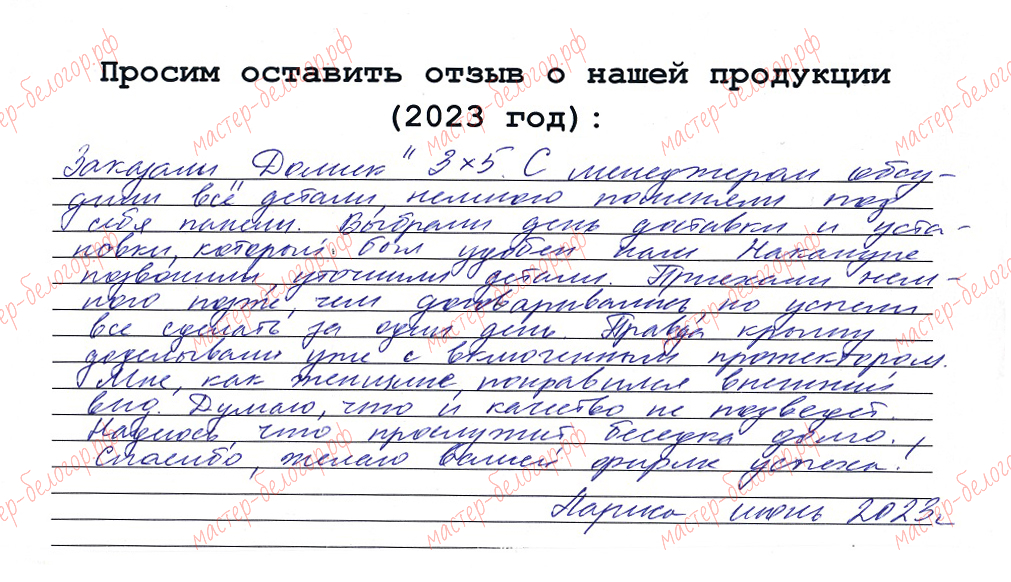 Просим оставить отзыв о нашей продукции
(2023 год):
Заказали "Домик" 3×5. С менеджером обсу-
дили все детали, немного поменяли под
себя панели. Выбрали день доставки и уста-
новки, который был удобен нам. Накануне
позвонили, уточнили детали. Приехали нем-
ного позже, чем договаривались, но успели
все сделать за один день. Правда крышу
доделывали уже с включенным прожектором.
Мне, как женщине, понравился внешний
вид. Думаю, что и качество не подведет.
Надеюсь, что прослужит беседка долго.
Спасибо, желаю вашей фирме успеха!
Лариса июнь 2023г.
мастер-белогор.рф